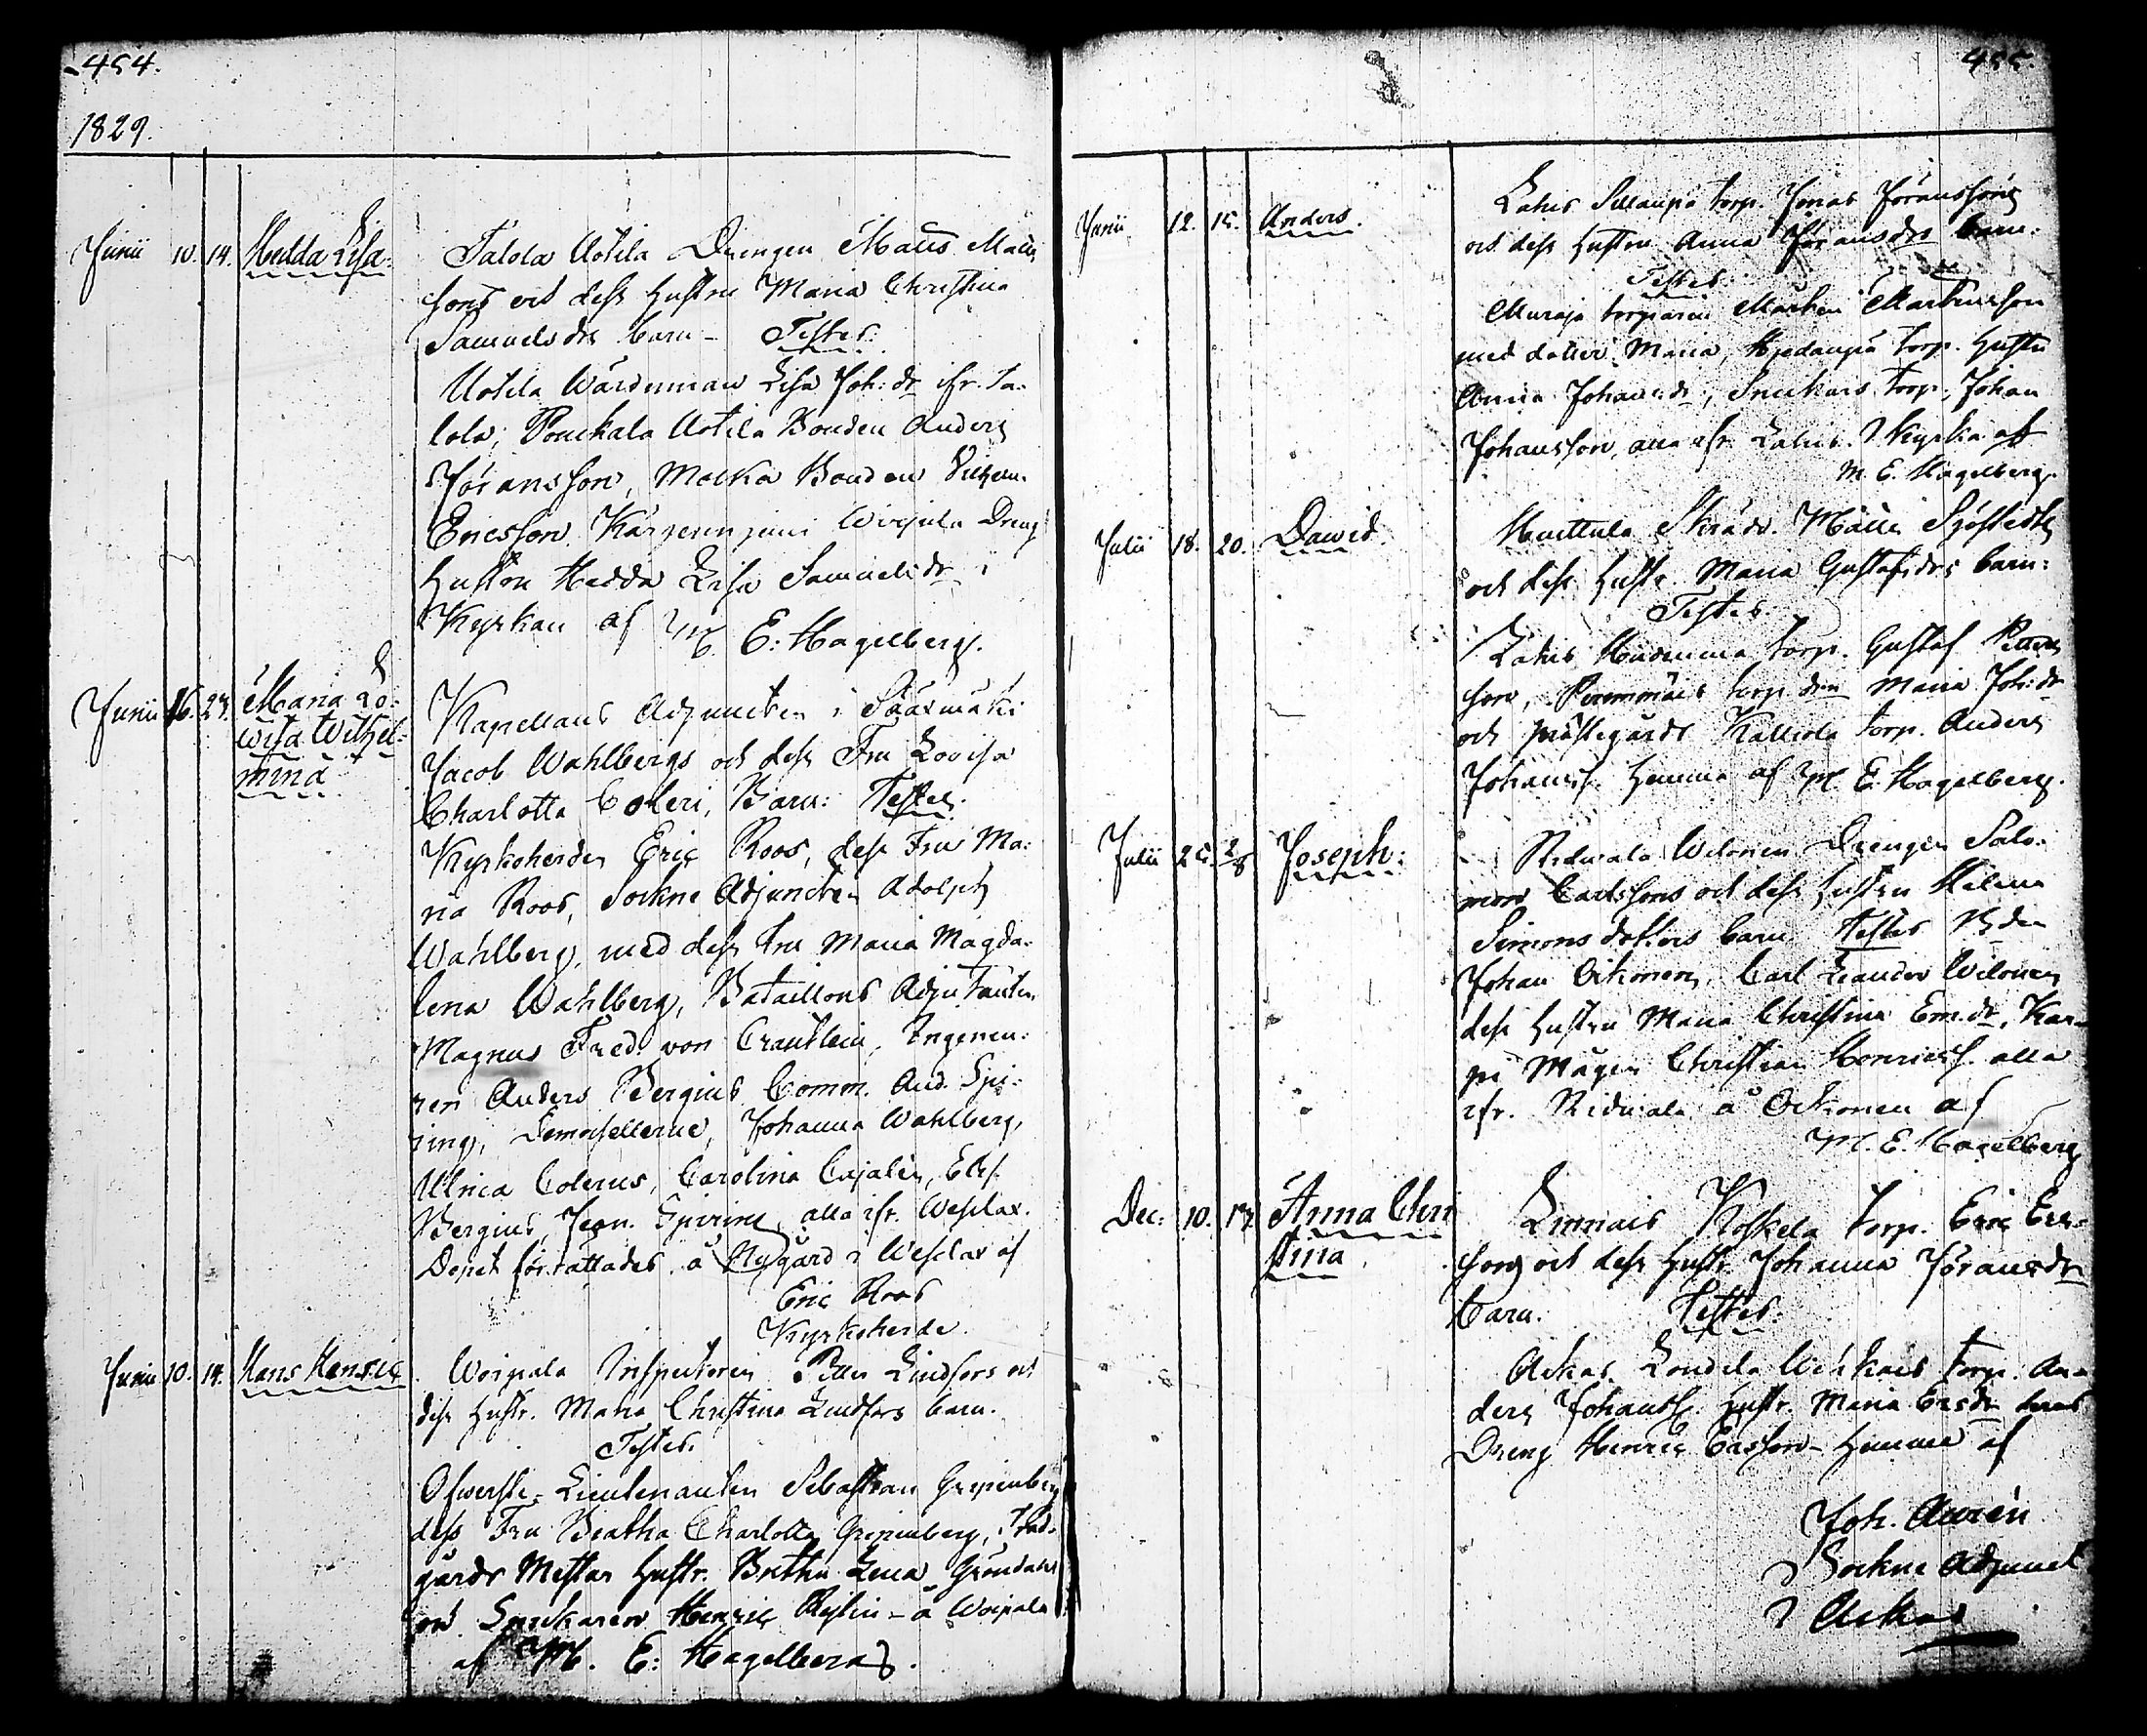 454.
1829.
Junii 10. 14. Hedda Lisa.
Talola Uotila Drengen Matts Matts
sons och dess hustru Maria Christina
Samuelsdrs barn – Testes:
Uotila Wärdinnan Lisa Joh: dr ifr. Ta-
lola; Bonden Anders
Jöransson, Bonden
Ericsson. Dreng
hustru Hedda Lisa Samuelsdr i
Kyrkan af M E: Hagelberg.
Junii 16. 23. Maria Lo-
wisa Wilhel-
mina
Kapellans Adjuncten i Sääxmäki
Jacob Wahlbergs och dess Fru Lovisa
Charlotta Coleri, Barn: Testes.
Kyrkoherden Eric Roos, dess Fru Ma-
ria Roos, Sockne Adjuncten Adolph
Wahlberg, med dess Fru Maria Magda-
lena Wahlberg, Bataillons Adjutanten
Magnus Fred. von Crautlein, Ingeneu-
ren Anders Bergius, Comm. And. Spi-
ring, Demoisellerne, Johanna Wahlberg,
Ulrica Colerus, Carolina Cajalén, Els.
Bergius, Jean. Spiring alla ifr. Wesilax.
Dopet förrättades å Nygård i Wesilax af
Eric Roos
Kyrkoherde.
Junii 10. 14. Hans Henric
Woipala Inspectoren Petter Lindfors och
dess hustr. Maria Christina Lindfors barn.
Testes.
Öfwerste-Lieutenanten Sebastian Gripenberg
dess Fru Beatha Charlotta Gripenberg, Träd-
gårds Mestar hustr. Britha Lena Gröndahl
och Snickaren Henric – å Woipala
af M. E: Hagelberg.
455.
Junii 12. 15. Anders.
Lahis torp. Jonas Jöranssons
och dess hustru Anna Jöransdrs barn.
Testes:
torparen Mårten Mårtensson
med dotter Maria, torp. hustru
Anna Johansdr, Snickars torp. Johan
Johansson, alla ifr. Lahis. I Kyrka aff
M. E. Hagelberg.
Julii 18. 20. Dawid.
Huittula Skrädd. Matts Sjöstedts
och dess hustr. Maria Gustafsdrs barn:
Testes.
Lahis torp. Gustaf Petters
son, torp drn Maria Joh: dr
och prästegårds Kalliola torp. Anders
Johanss. hemma af M. E. Hagelberg.
Julii 25. 2/8 Joseph:
Ridwala Wilonen Drengen Salo-
mon Carlssons och dess hustru Helena
Simons dotters barn. Testes Bden
Johan Oikonen, Carl Leander Wilonen
dess hustru Maria Christina Em.dr, Kar-
pi Mågen Christian Henricss. alla
ifr. Ridwala å Oikonen af
M. E. Hagelberg
Dec: 10. 13. Anna Chri
stina
Linnais Koskela torp. Eric Eric-
sons och dess hustr. Johanna Jöransdrs
barn. Testes:
Ackas torp. An-
ders Johanss. hustr. Maria Ersdr deras
Dreng Henric Ericsson – hemma af
Joh. Aurén
Sockne Adjunct
i Ackas